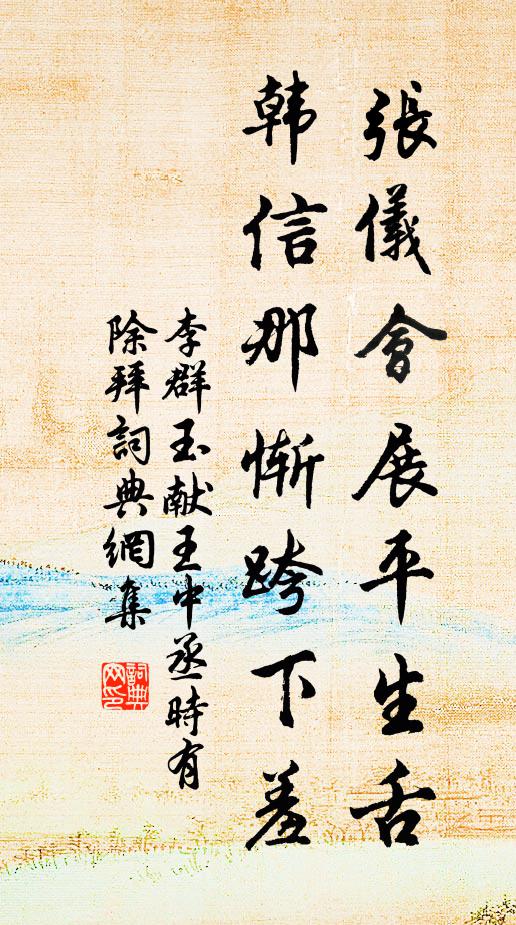 張儀會展平生舌
韩信那慚跨下羞
李群玉献王中丞時有
除拜詞典網集
詞典網印